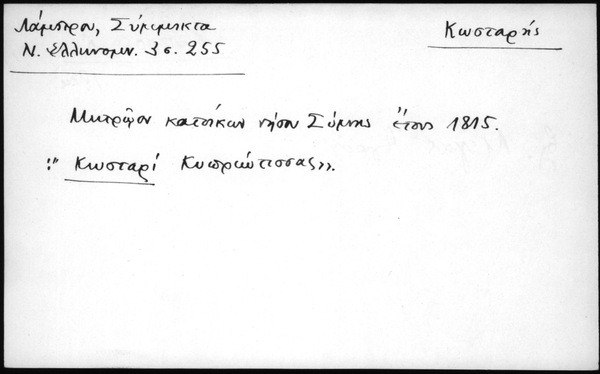 Λάμπρου, Σύμμεικτα
Κωσταρῆς
Ν. Ἑλληνομν. 3 σ. 255
Μητρῷον κατοίκων νήσου Σύμης ἔτους 1815.
:" Κωσταρί Κυπριώτισσας».